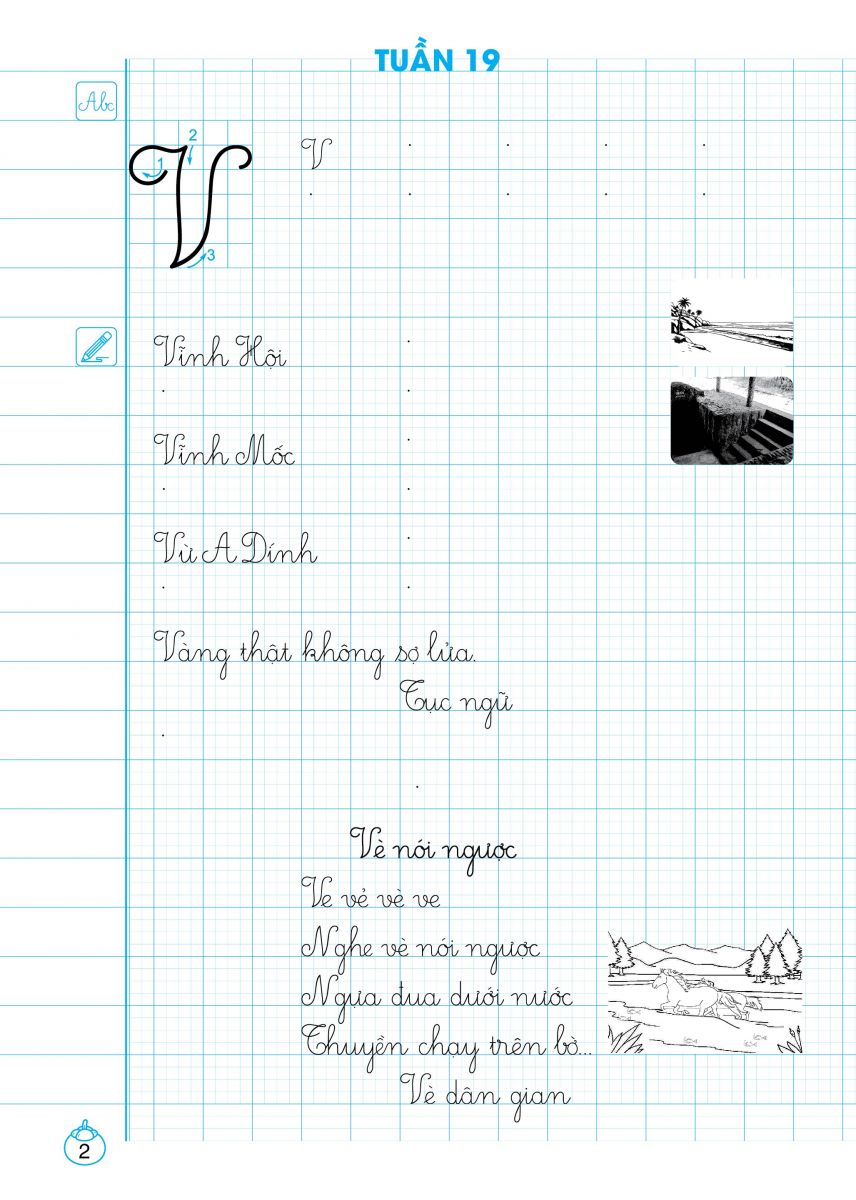 TUẦN 19
Abc
1 2 3
V
Vĩnh Hội
Vĩnh Mốc
Vừ A Dính
Vàng thật không sợ lửa.
Tục ngữ
Vè nói ngược
Ve vẻ vè ve
Nghe vè nói ngược
Ngựa đua dưới nước
Thuyền chạy trên bờ...
Vè dân gian
2